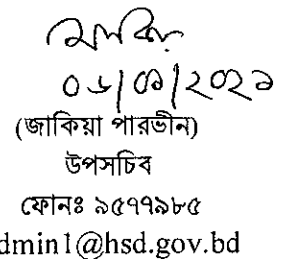 ০৬/০৯/২০২১
(জাকিয়া পারভীন)
উপসচিব
ফোনঃ ৯৫৭৭৯৮৫
dmin1@hsd.gov.bd